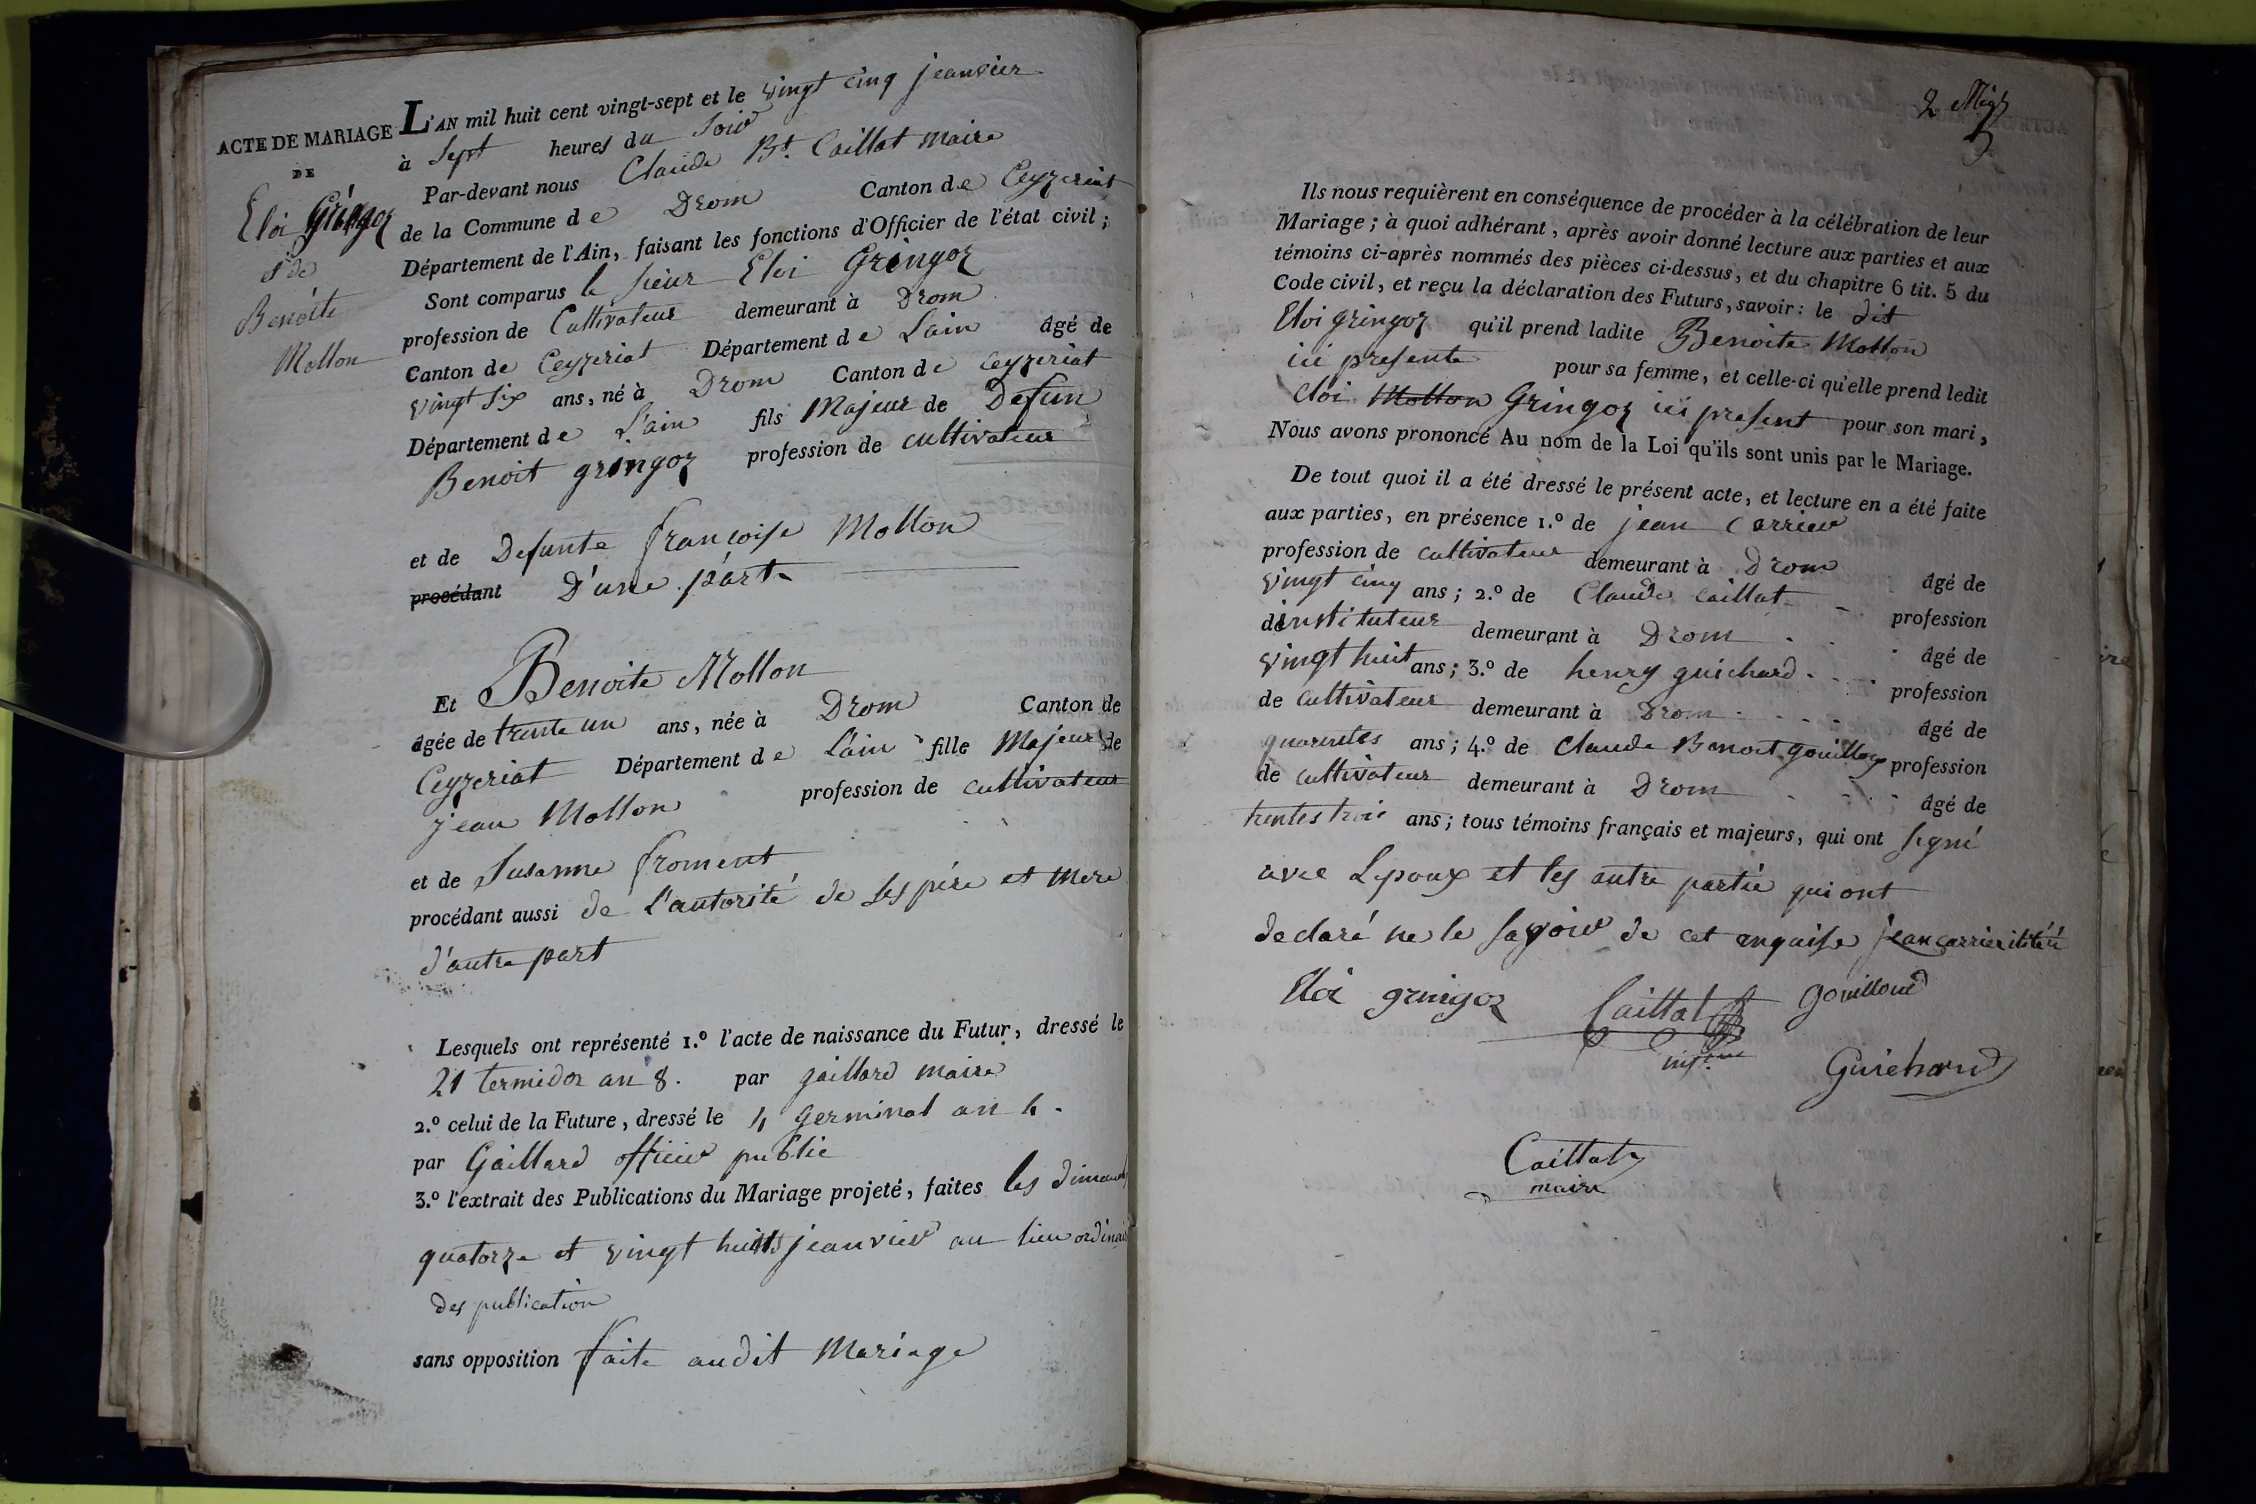 ACTE DE MARIAGE
DE
Eloi Gringoz
& de
Benoite
Mollon
L'AN mil huit cent vingt-sept et le vingt cinq jeanvier
à Sept heures du Soir
Par-devant nous Claude Bt. Caillat maire
de la Commune de Drom Canton de Ceyzeriat
Département de l'Ain, faisant les fonctions d'Officier de l'état civil ;
Sont comparus le sieur Eloi Gringoz
profession de Cultivateur demeurant à Drom
Canton de Ceyzeriat Département de Lain âgé de
vingt six ans, né à Drom Canton de Ceyzeriat
Département de L'ain fils Majeur de Defun
Benoit gringoz profession de cultivateur
et de Defunte francoise Mollon
procédant D'une part
Et Benoite Mollon
âgée de trente un ans, née à Drom Canton de
Ceyzeriat Département de Lain fille Majeur de
jean Mollon profession de cultivateur
et de Susanne froment
procédant aussi de L'autorité de ses père et mere
d'autre part
Lesquels ont représenté 1.º l'acte de naissance du Futur, dressé le
21 termidor an 8. par gaillard maire
2.º celui de la Future, dressé le 4 germinal an 4.
par Gaillard officier public
3.º l'extrait des Publications du Mariage projeté, faites les
quatorze et vingt huit jeanvier au lieu ordinai
des publication
sans opposition faite audit Mariage
2
Ils nous requièrent en conséquence de procéder à la célébration de leur
Mariage ; à quoi adhérant, après avoir donné lecture aux parties et aux
témoins ci-après nommés des pièces ci-dessus, et du chapitre 6 tit. 5 du
Code civil, et reçu la déclaration des Futurs, savoir : le dit
Eloi gringoz qu'il prend ladite Benoite Mollon
ici presente pour sa femme, et celle-ci qu'elle prend ledit
eloi Mollon Gringoz ici present pour son mari,
Nous avons prononcé Au nom de la Loi qu'ils sont unis par le Mariage.
De tout quoi il a été dressé le présent acte, et lecture en a été faite
aux parties, en présence 1.º de jean Carrier
profession de cultivateur demeurant à Drom âgé de
vingt cinq ans ; 2.º de Claude caillat profession
dinstituteur demeurant à Drom âgé de
vingt huit ans ; 3.º de henry guichard profession
de cultivateur demeurant à Drom âgé de
quarentes ans ; 4.º de Claude Benoit gouilloux profession
de cultivateur demeurant à Drom âgé de
trentes trois ans ; tous témoins français et majeurs, qui ont signé
avec Lepoux et les autre partie qui ont
declaré ne le savoir de cet enquise jean carrier
Eloi gringoz Caillat gouilloud
Guichard
Caillat
maire